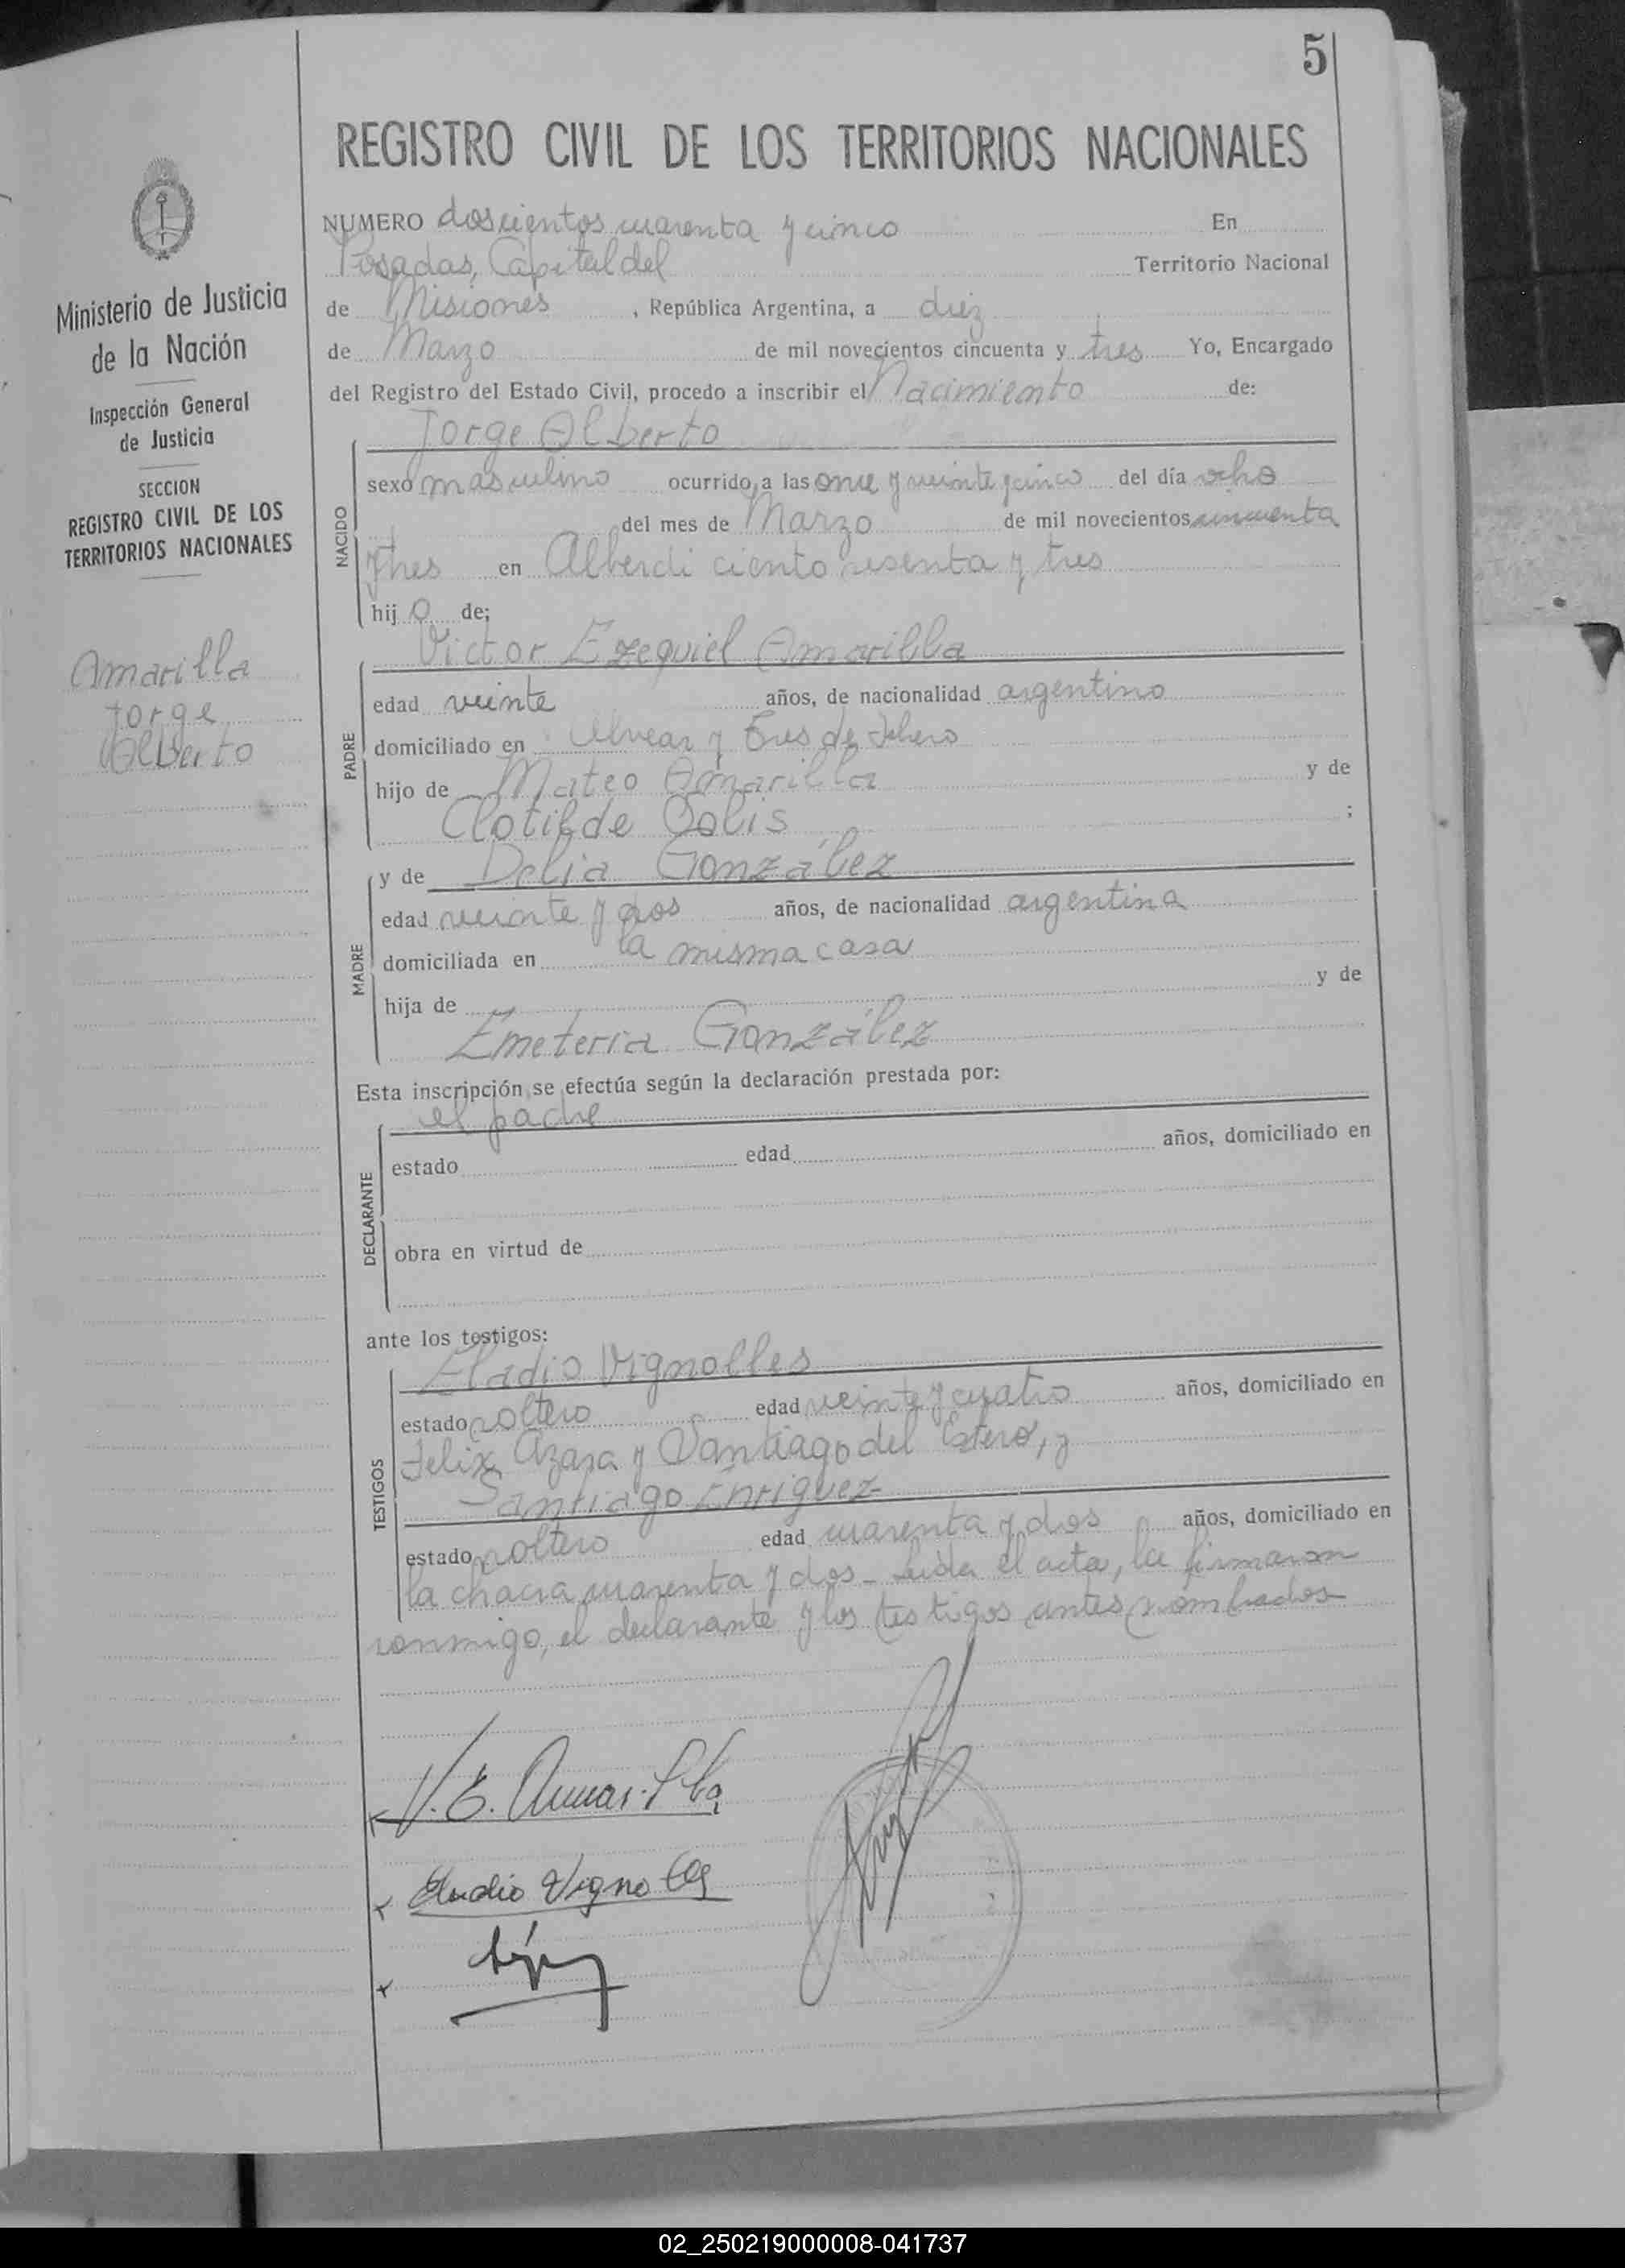 5
REGISTRO CIVIL DE LOS TERRITORIOS NACIONALES
Ministerio de Justicia
de la Nación
Inspección General
de Justicia
SECCION
REGISTRO CIVIL DE LOS
TERRITORIOS NACIONALES
Amarilla
Jorge
Alberto
NUMERO doscientos cuarenta y cinco En
Posadas, Capital del Territorio Nacional
de Misiones, República Argentina, a diez
de Marzo de mil novecientos cincuenta y tres Yo, Encargado
del Registro del Estado Civil, procedo a inscribir el Nacimiento de:
Jorge Alberto
NACIDO
sexo masculino ocurrido, a las once y veinte y cinco del día ocho
del mes de Marzo de mil novecientos cincuenta
y tres en Alberdi ciento sesenta y tres
hijo de;
Victor Ezequiel Amarilla
PADRE
edad veinte años, de nacionalidad argentino
domiciliado en Alvear y Tres de Febrero
hijo de Mateo Amarilla y de
Clotilde Solis ;
y de Delia González
MADRE
edad veinte y dos años, de nacionalidad argentina
domiciliada en la misma casa
hija de y de
Emeteria González
Esta inscripción se efectúa según la declaración prestada por:
el padre
DECLARANTE
estado edad años, domiciliado en
obra en virtud de
ante los testigos:
Eladio Vignolles
TESTIGOS
estado soltero edad veinte y cuatro años, domiciliado en
Felix Azara y Santiago del Estero, y
Santiago Enriquez
estado soltero edad cuarenta y dos años, domiciliado en
la chacra cuarenta y dos - Leída el acta, la firmaron
conmigo, el declarante y los testigos antes nombrados
V. E. Amarilla
Eladio Vignolles
02_250219000008-041737